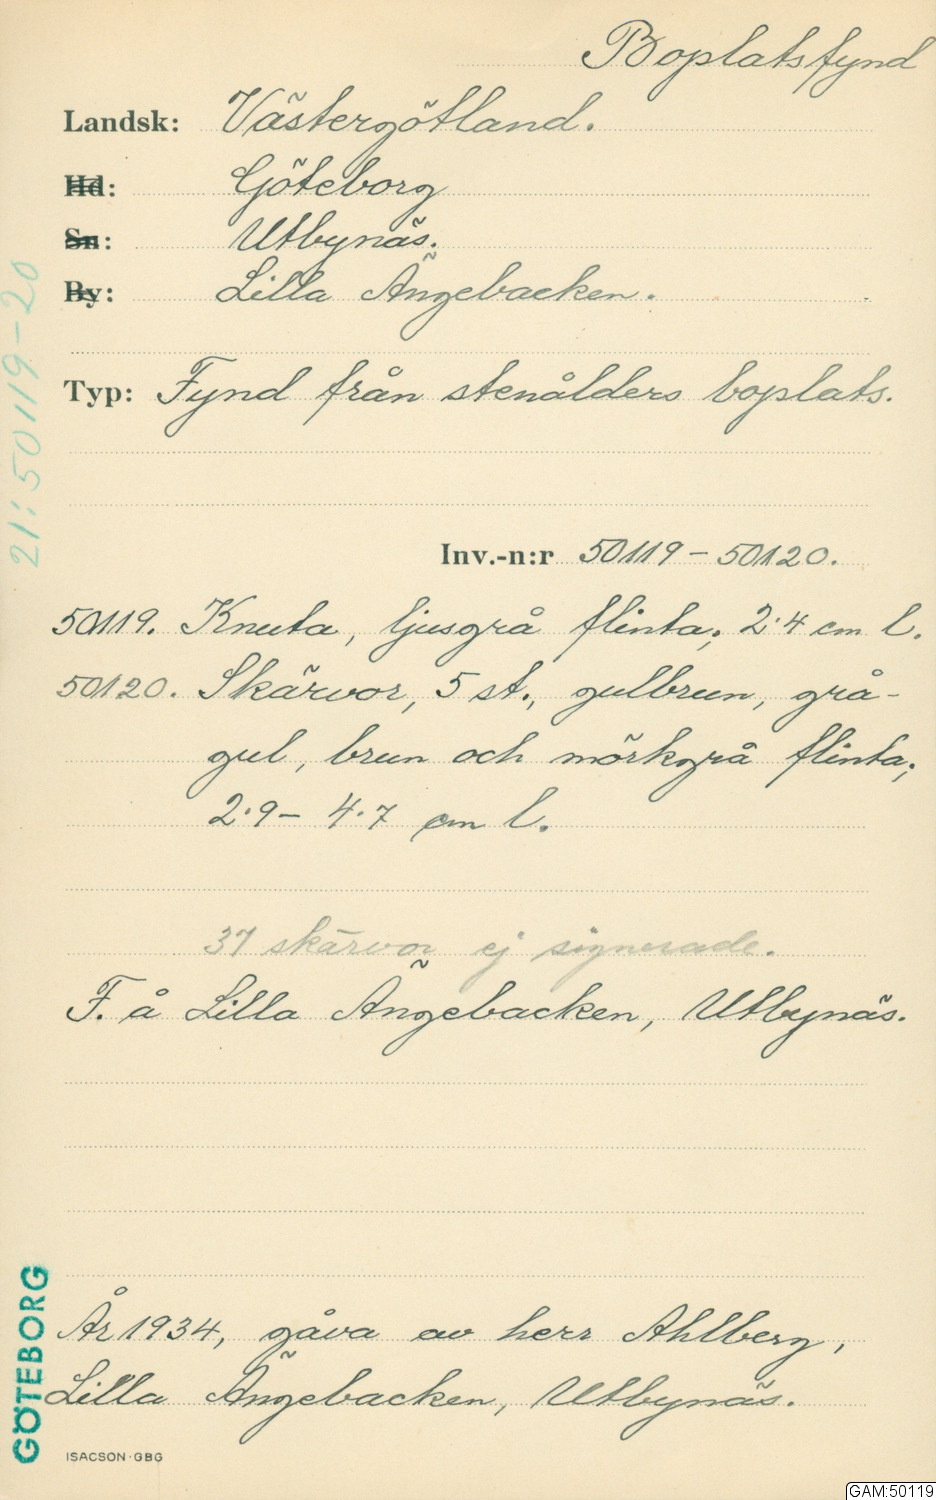 Boplatsfynd
Landsk: Västergötland.
Hd: Göteborg
Sn: Utbynäs.
By: Lilla Ängebacken.
Typ: Fynd från stenålders boplats.
21:50119-20
Inv.-n:r 50119-50120.
50119. Knuta, ljusgrå flinta; 2·4 cm l.
50120. Skärvor, 5 st., gulbrun, grå-
gul, brun och mörkgrå flinta;
2·9- 4·7 cm l.
37 skärvor ej signerade.
F. å Lilla Ängebacken, Utbynäs.
År 1934, gåva av herr Ahlberg,
Lilla Ängebacken, Utbynäs.
GÖTEBORG
ISACSON·GBG
GAM:50119